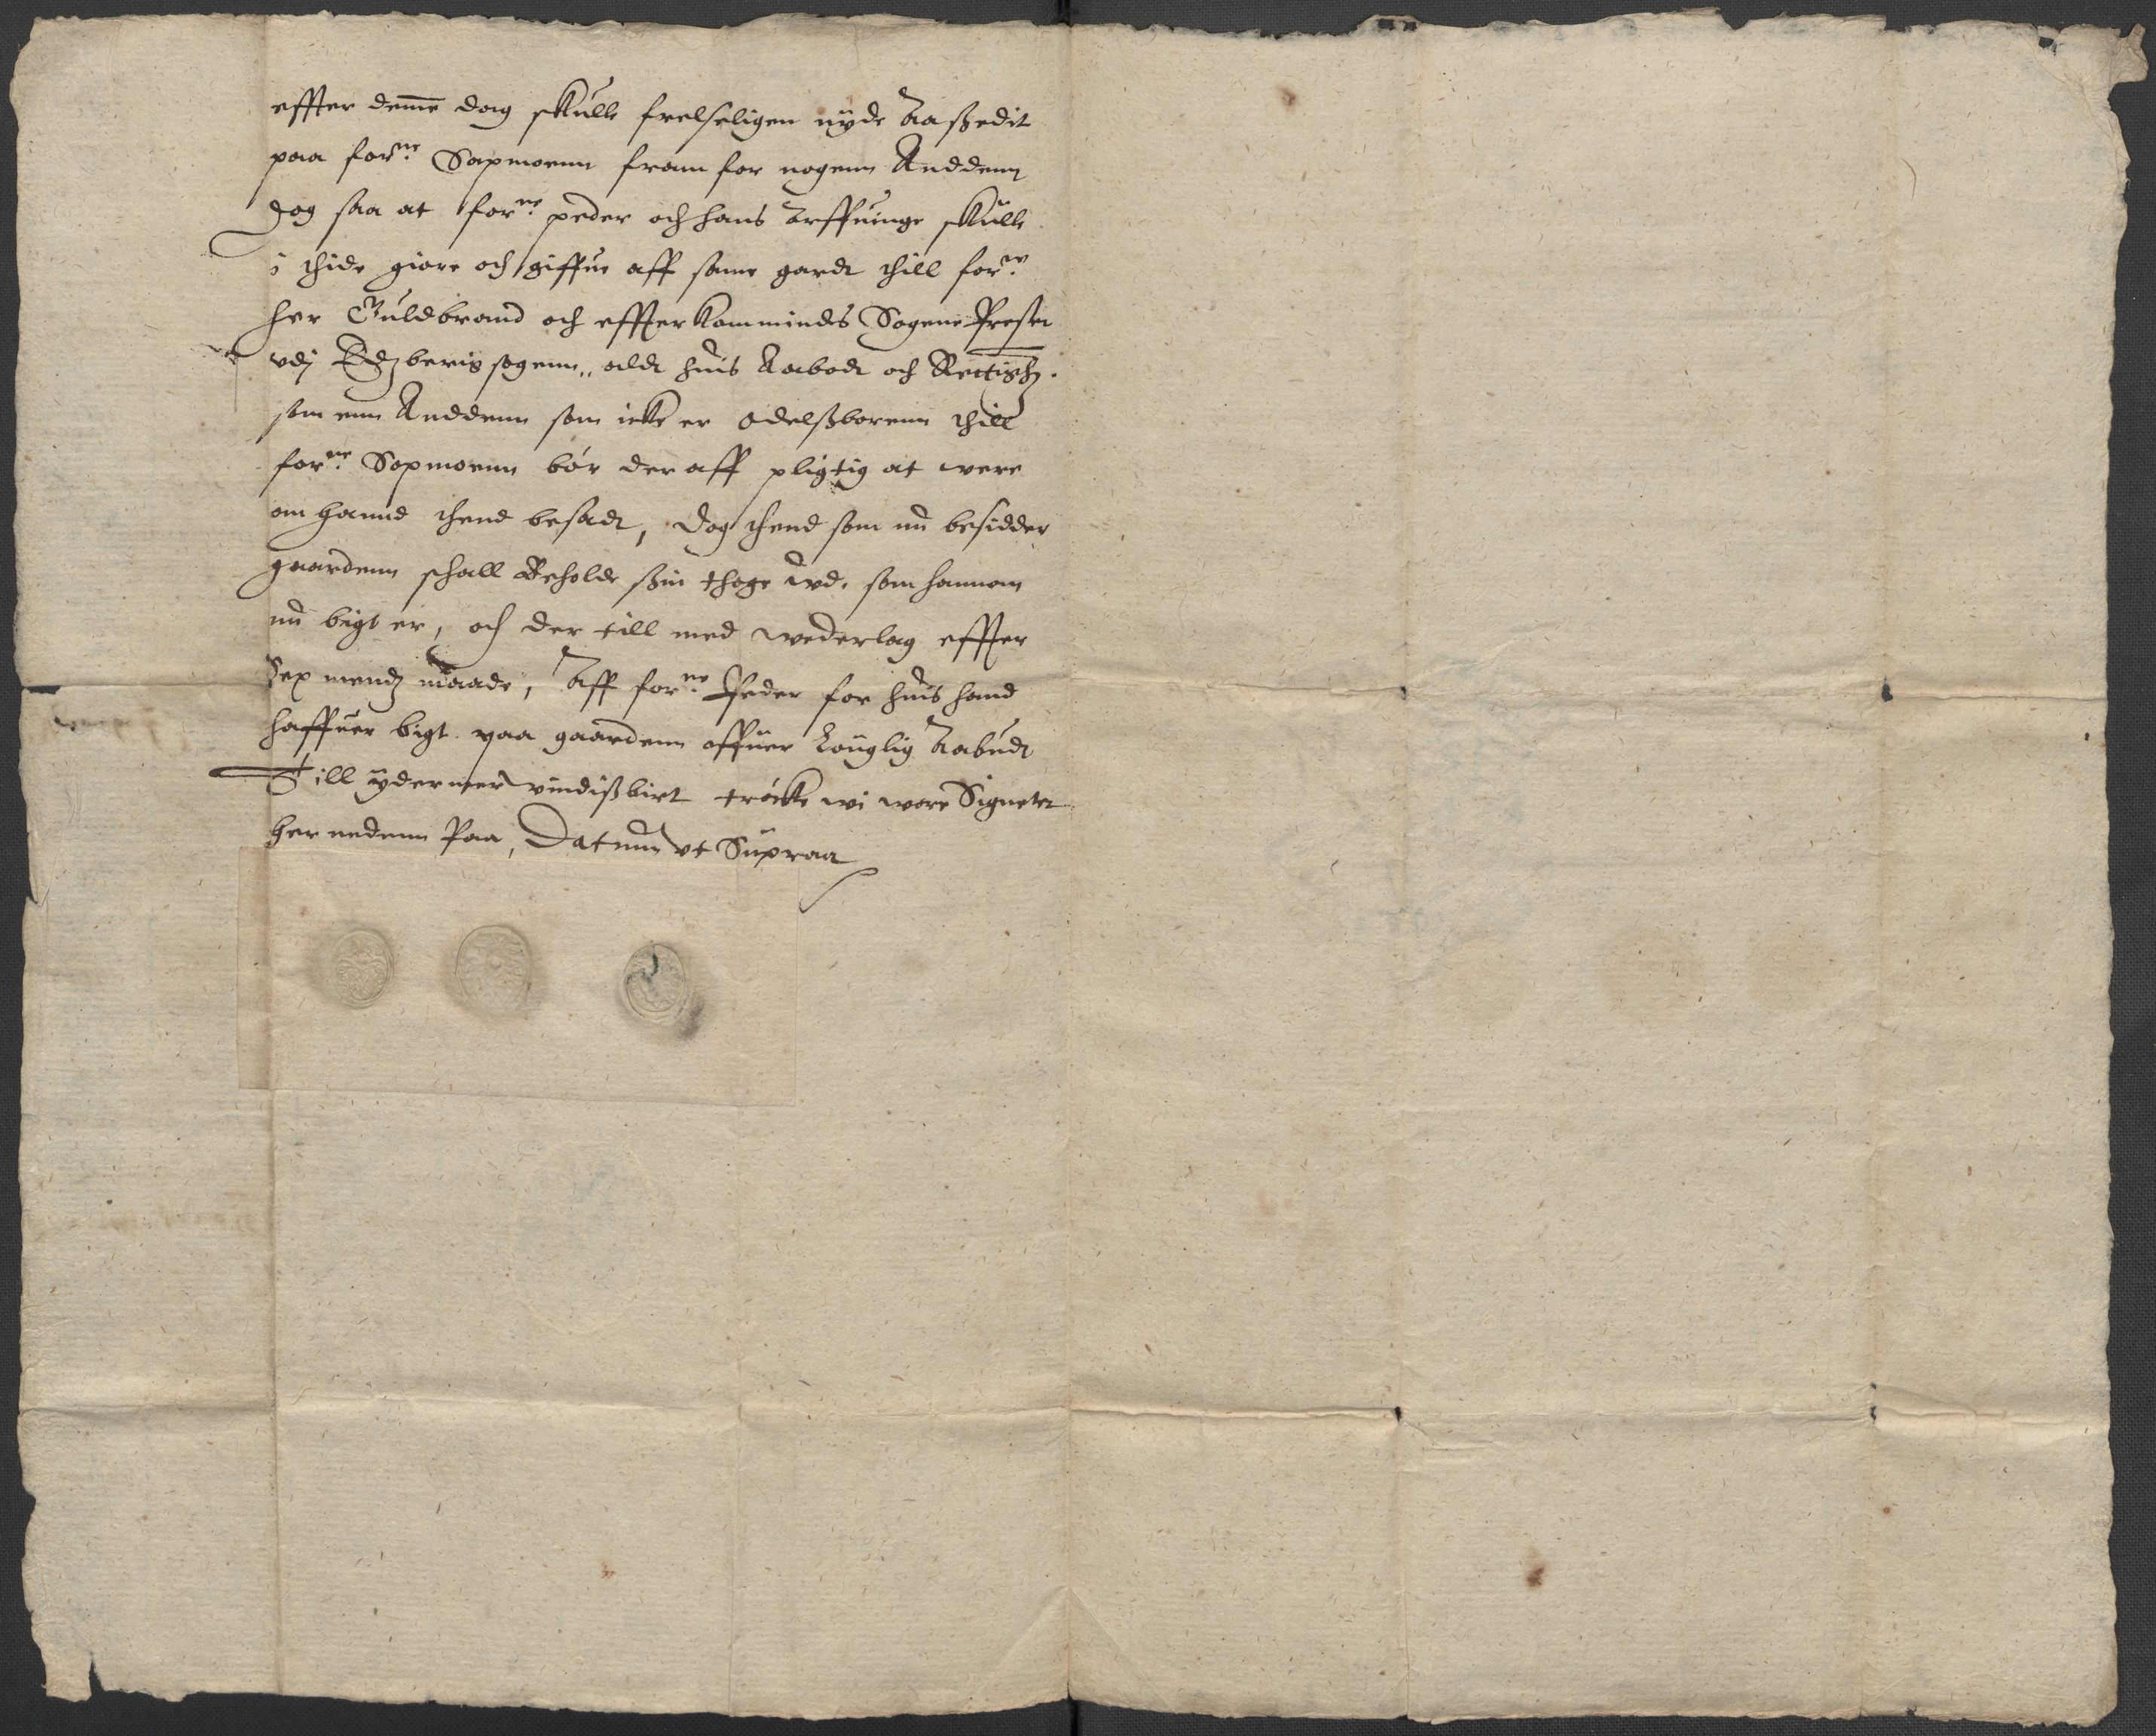 effter denne dag skulle frelseligen nyde Aaßedit
paa forne: Sopmoenn fram for nogenn Anddenn
Dog saa at forne: peder och hans Arffuinge skulle
i thide giøre och giffue aff same gardt thill forne:
her Guldbrand och effterkommindes Sogene Prester
vdj sogenn, aldt huis Aabodt och
som enn Anddenn som icke er odelßborenn thill
forne: Sopmoenn bør der aff pligtig at were
om hannd thend besadt, Dog thend som nu besidder
gaardenn schall Beholde ßin som hannom
nu bigt er, och der till med wederlag effter
Sex mendz maade, Aff forne: Peder for huis hand
haffuer bigt paa gaardenn offuer Louglig Aabudt
Till ydermer vindißbirt trøcke wi wore Signeter
her nedenn Paa, Datum vt Supraa